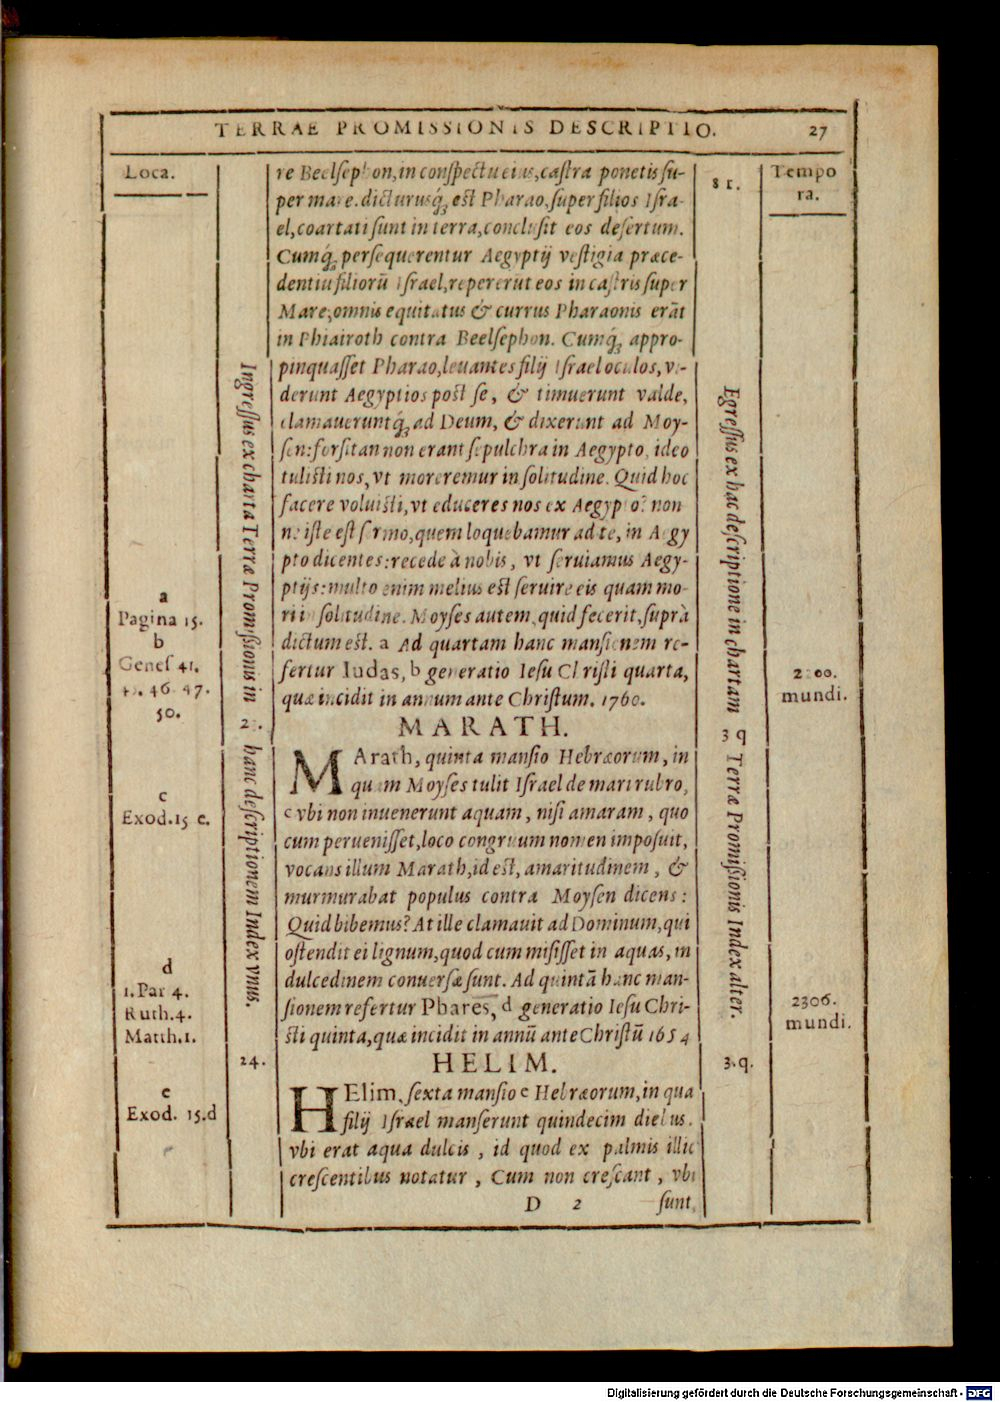 TERRAE PROMISSIONIS DESCRIPTIO. 27
Loca.
Tempo
ra.
81.
re Beelsephon, in conspectu eius, castra ponetis su-
per mare. dicturusq́ꝫ est Pharao, super filios Isra-
el, coartati sunt in terra, conclusit eos desertum.
Cumq́ꝫ persequerentur Aegyptij vestigia præce-
dentiũ filiorũ Israel, repererũt eos in castris super
Mare, omnis equitatus & currus Pharaonis erãt
in Phiairoth contra Beelsephon. Cumq́ꝫ appro-
pinquasset Pharao, leuantes filij Israel oculos, vi-
derunt Aegyptios post se, & timuerunt valde,
clamaueruntq́ꝫ ad Deum, & dixerunt ad Moy-
sen: forsitan non erant sepulchra in Aegypto, ideo
tulisti nos, vt moreremur in solitudine. Quid hoc
facere voluisti, vt educeres nos ex Aegypto? non
ne iste est sermo, quem loquebamur ad te, in Aegy
pto dicentes: recede à nobis, vt seruiamus Aegy-
ptijs: multo enim melius est seruire eis quam mo-
ri in solitudine. Moyses autem, quid fecerit, suprà
dictum est. a Ad quartam hanc mansionem re-
fertur Iudas, b generatio Iesu Christi quarta,
quæ incidit in annum ante Christum. 1760.
MARATH.
MArath, quinta mansio Hebræorum, in
quam Moyses tulit Israel de mari rubro,
c vbi non inuenerunt aquam, nisi amaram, quo
cum peruenisset, loco congruum nomen imposuit,
vocans illum Marath, id est, amaritudinem, &
murmurabat populus contra Moysen dicens:
Quid bibemus? At ille clamauit ad Dominum, qui
ostendit ei lignum, quod cum misisset in aquas, in
dulcedinem conuersæ sunt. Ad quintã hanc man-
sionem refertur Phares, d generatio Iesu Chri-
sti quinta, quæ incidit in annũ ante Christũ 1654
HELIM.
HElim, sexta mansio e Hebræorum, in qua
filij Israel manserunt quindecim diebus.
vbi erat aqua dulcis, id quod ex palmis illic
crescentibus notatur, Cum non crescant, vbi
D 2 sunt
a
Pagina 15.
b
Genes 41.
46 47.
50.
c
Exod. 15 e.
d
1. Par 4.
Ruth. 4.
Matth. 1.
e
Exod. 15. d
Ingressus ex charta Terræ Promissionis in
hanc descriptionem Index vnus.
24.
Egressus ex hac descriptione in chartam
39
Terræ Promißionis Index alter.
3.q.
2200.
mundi.
2306.
mundi.
Digitalisierung gefördert durch die Deutsche Forschungsgemeinschaft - DFG